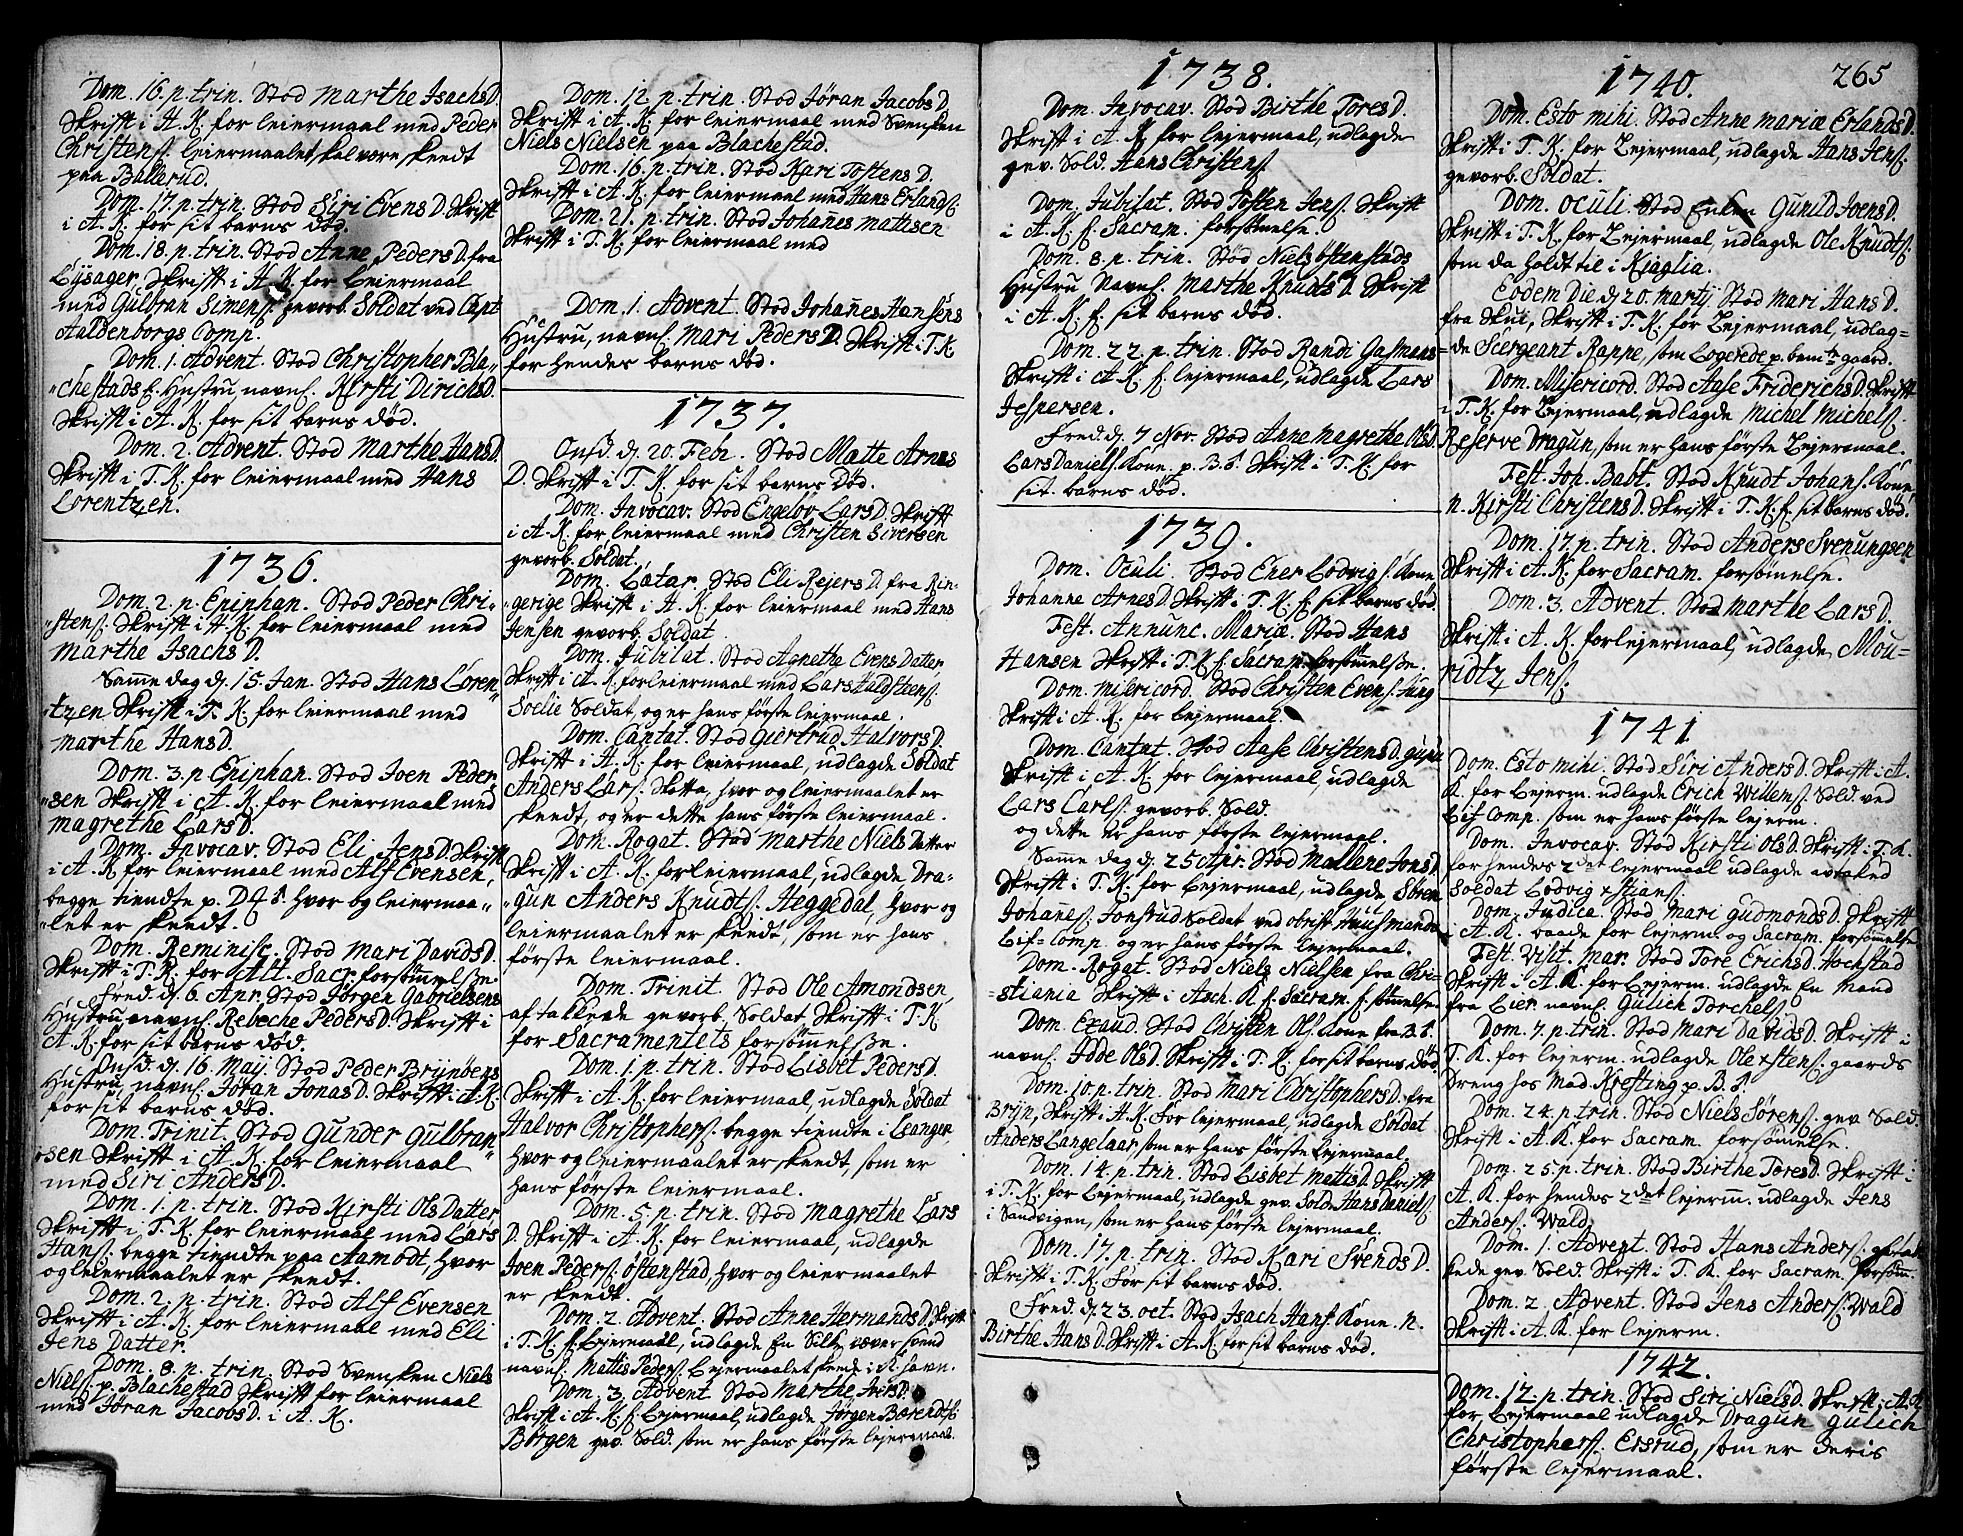 Dom. 16. p. trin. Stod Marthe Isachs D.
Skrifft i A. K. for leiermaal med Peder
Christens. leiermaalet skal være skeedt
paa Ballerud.
Dom. 17. p. trin. Stod Siri Evens D. Skrift
i A. K. for sit barns død.
Dom. 18. p. trin. Stod Anne Peders D. fra
Lysager, Skrifft i A. K. for Leiermaal
med Gulbran Simens. gevorb. Soldat ved Capt
Aaldenborgs Comp.
Dom. 1. Advent. Stod Christopher Bla-
chestads f. Hustru navnl. Kirsti Dirichs D.
Skrifft i A. K. for sit barns død.
Dom. 2. Advent. Stod Marthe Hans D.
Skrifft i T. K. for leiermaal med Hans
Lorentzen.
1736.
Dom. 2. p. Epiphan. Stod Peder Chri-
stens. Skrifft i A. K. for leiermaal med
Marthe Isachs D.
Samme dag d. 15. Jan. Stod Hans Loren-
tzen Skrifft i T. K. for leiermaal med
Marthe Hans D.
Dom. 3. p. Epiphan. Stod Joen Peder-
sen Skrifft i A. K. for leiermaal med
Magrethe Lars D.
Dom. Invocav. Stod Eli Jens D. Skrifft
i A. K. for leiermaal med Alf Evensen,
begge tiendte p. hvor og leiermaa-
let er skeedt.
Dom. Reminisc. Stod Mari Davids D.
Skrifft i T. K. for Alt. Sacr. forsømmelsse.
Fred. d. 6. Apr. Stod Jørgen Gabrielsens
Hustru navnl. Rebeche Peders D. Skrifft i
A. K. for sit barns død.
Onsd. d. 16. Maij. Stod Peder Brynbens
Hustru, navnl. Jøran Jonas D. Skrifft i A. K.
for sit barns død.
Dom. Trinit. Stod Gunder Gulbran-
sen Skrifft i A. K. for leiermaal
med Siri Anders D.
Dom. 1. p. trin. Stod Kirsti Ols Datter
Skrifft i T. K. for leiermaal med Lars
Hans. begge tiendte paa Aamodt, hvor
og leiermaalet er skeedt.
Dom. 2. p. trin. Stod Alf Evensen
Skrifft i A. K. for leiermaal med Eli
Jens Datter.
Dom. 8. p. trin. Stod Svensken Niels
Niels. p. Blachestad Skrifft for leiermaal
med Jøran Jacobs D. i A. K.
Dom. 12. p. trin. Stod Jøran Jacobs D.
Skrifft i A. K. for leiermaal med Svensken
Niels Nielsen paa Blachestad.
Dom. 16. p. trin. Stod Kari Tostens D.
Skrifft i A. K. for leiermaal med Hans Erlands.
Dom. 21. p. trin. Stod Johanes Mathsen
Skrifft i T. K. for leiermaal med
Dom. 1. Advent. Stod Johanes Hansens
Hustru, navnl. Mari Peders D. Skrifft i T. K.
for hendes barns død.
1737.
Onsd. d. 20. Febr. Stod Matte Arnes
D. Skrifft i T. K. for sit barns Død.
Dom. Invocav. Stod Engeløv Lars D. Skrifft
i A. K. for leiermaal med Christen Siversen
gevorb. Soldat.
Dom. Lætar. Stod Eli Rejers D. fra Rin-
gerige Skrifft i A. K. for leiermaal med Hans
Jensen gevorb. Soldat.
Dom. Jubilat. Stod Agnethe Evens Datter
Skrifft i A. K. for leiermaal med Lars Haldsteens.
Soelie Soldat, og er hans første leiermaal.
Dom. Cantat. Stod Giertrud Halvors D.
Skrifft i A. K. for leiermaal, udlagde Soldat
Anders Lars. Skotta, hvor og leiermaalet er
skeedt, og er dette hans første leiermaal.
Dom. Rogat. Stod Marthe Niels Datter
Skrifft i A. K. for leiermaal, udlagde Dra-
gun Anders Knudts. Heggedal, hvor og
leiermaalet er skeedt, som er hans
første leiermaal.
Dom. Trinit. Stod Ole Amondsen,
aftakkede gevorb. Soldat Skrifft i T. K.
for Sacramentets forsømelsse.
Dom. 1. p. trin. Stod Lisbet Peders D.
Skrifft i A. K. for leiermaal, udlagde Soldat
Halvor Christophers. begge tiendte i Leangen,
hvor og leiermaalet er skeedt, som er
hans første leiermaal.
Dom. 5. p. trin. Stod Magrethe Lars
D. Skrifft i A. K. for leiermaal, udlagde
Joen Peders. Østenstad, hvor og leiermaalet
er skeedt.
Dom. 2. Advent. Stod Anne Hermands D. Skrifft
i T. K. f. Lejermaal, udlagde En Silke væver svend
navnl. Mattis Peders. Lejermaalet skeede i K. havn.
Dom. 3. Advent. Stod Marthe Ivers D.
Skrifft i A. K. f. Lejermaal, udlagde Jørgen Barendts.
Børgen gev. Sold. som er hans første lejermaal.
1738.
Dom. Invocav. Stod Birthe Tores D.
Skrifft i A. K. for lejermaal, udlagde
gev. Sold. Hans Christens.
Dom. Jubilat. Stod Tosten Jens. Skrifft
i A. K. f. Sacram. forsømelse.
Dom. 8. p. trin. Stod Niels Østenstads
Hustru Navnl. Marthe Knudts D. Skrift
i A. K. f. sit barns død.
Dom. 22. p. trin. Stod Randi Gasmans
Skrifft i A. K. f. lejermaal, udlagde Lars
Jespersen.
Fred. d. 7 Nov. Stod Anne Magrethe Ols D.
Lars Daniels. Kone p. B. S. Skrifft i T. K. for
sit barns død.
1739.
Dom. Oculi Stod Ener Lodvigs. Kone,
Johanne Arnes D. Skrifft i T. K. f. sit barns død.
Fest. Annunc. Mariæ. Stod Hans
Hansen Skrifft i T. K. f. Sacram. forsømmelsse.
Dom. Misericord. Stod Christen Evens. Jung
Skrifft i A. K. for lejermaal.
Dom. Cantat. Stod Aase Christens D.
Skrifft i A. K. for lejermaal, udlagde
Lars Carls. gevorb. Sold.
og dette er hans første lejermaal.
Samme dag d. 25 Apr. Stod Mallene Jons D.
Skrifft i T. K. for Lejermaal, udlagde Søren
Johanes. Jonsrud Soldat ved obrist Huusmands
Lif-Comp. og er hans første Lejermaal.
Dom. Rogat. Stod Niels Nielsen fra Chri-
stiania Skrifft i Asch. K. f. Sacram. f.sømmelse.
Dom. Exaud. Stod Christen Ols. Kone fra B. S.
navnl. Idde Ols D. Skrifft i T. K. for sit barns død.
Dom. 10. p. trin. Stod Mari Christophers D. fra
Bryn, Skrifft i A. K. for lejermaal, udlagde Soldat
Anders Langelaar, som er hans første Lejermaal.
Dom. 14. p. trin. Stod Lisbet Mattis D. Skrifft
i T. K. for Lejermaal, udlagde gev. Sold. Hans Daniels.
i Sandvigen, som er hans første lejermaal.
Dom. 17. p. trin. Stod Kari Svends D.
Skrifft i T. K. for sit barns død.
Fred. d. 23. oct. Stod Isach Hans. Kone. n.
Birthe Hans D. Skrifft i A. K. for sit barns død.
265
1740.
Dom. Esto mihi. Stod Anne Mariæ Erlands D.
Skrifft i T. K. for Lejermaal, udlagde Hans Jens.
gevorb. Soldat.
Dom. Oculi. Stod Enken Gunild Joens D.
Skrifft i T. K. for Lejermaal, udlagde Ole Knudts.
som da holdt til i Kiaglia.
Eodem Die d. 20. Martij Stod Mari Hans D.
fra Skui, Skrifft i T. K. for Lejermaal, udlag-
de Scergeant Rappe, som Logerede p. bem.te gaard.
Dom. Misericord. Stod Aase Friderichs D. Skrifft
i T. K. for Lejermaal, udlagde Michel Michels.
Reserve Dragun, som er hans første Lejermaal.
Fest. Joh. Babt. Stod Knudt Johans. Kone,
n. Kirsti Christens D. Skrifft i T. K. f. sit barns død.
Dom. 17. p. trin. Stod Anders Svenungsen
Skrifft i A. K. for Sacram. forsømelse.
Dom. 3. Advent. Stod Marthe Lars D.
Skrifft i A. K. for lejermaal, udlagde Mou-
ridtz Jens.
1741
Dom. Esto mihi. Stod Siri Anders D. Skrifft i A.
K. for Lejerm. udlagde Erich Willems. Sold. ved
Lif Comp. som er hans første lejerm.
Dom. Invocav. Stod Kirsti Ols D. Skrifft i T. K.
for hendes 2det lejermaal udlagde avtaked
Soldat Lodvig xstians.
Dom. Judica. Stod Mari Gudmonds D. Skrifft
i A. K. baade for lejerm. og Sacram. forsømmelse
Fest. Visit. Mar. Stod Tore Erichs D. Hochstad
Skrifft i A. K. for Lejerm. udlagde En Mand
fra Lier. navnl. Gulich Torchels.
Dom. 7. p. trin. Stod Mari Davids D. Skrifft i
T. K. for lejerm. udlagde Ole xstens. gaards
Dreng hos Mad. Kresting p. B. S.
Dom. 24. p. trin. Stod Niels Sørens. gev. Sold.
Skrifft i A. K. for Sacram. forsømelse.
Dom. 25. p. trin. Stod Birthe Tores D. Skrifft i
A. K. for hendes 2det lejerm. udlagde Jens
Anders. Wald.
Dom. 1. Advent. Stod Hans Anders. aftak-
kede gev. Sold. Skrifft i T. K. for Sacram. forsøm.
Dom. 2. Advent. Stod Jens Anders. Wald
Skrifft i A. K. for lejerm.
1742.
Dom. 12. p. trin. Stod Siri Niels D. Skrifft i A. K.
for Lejermaal udlagde Dragun Gulich
Christophers. Ersrud, som er deris
første lejermaal.